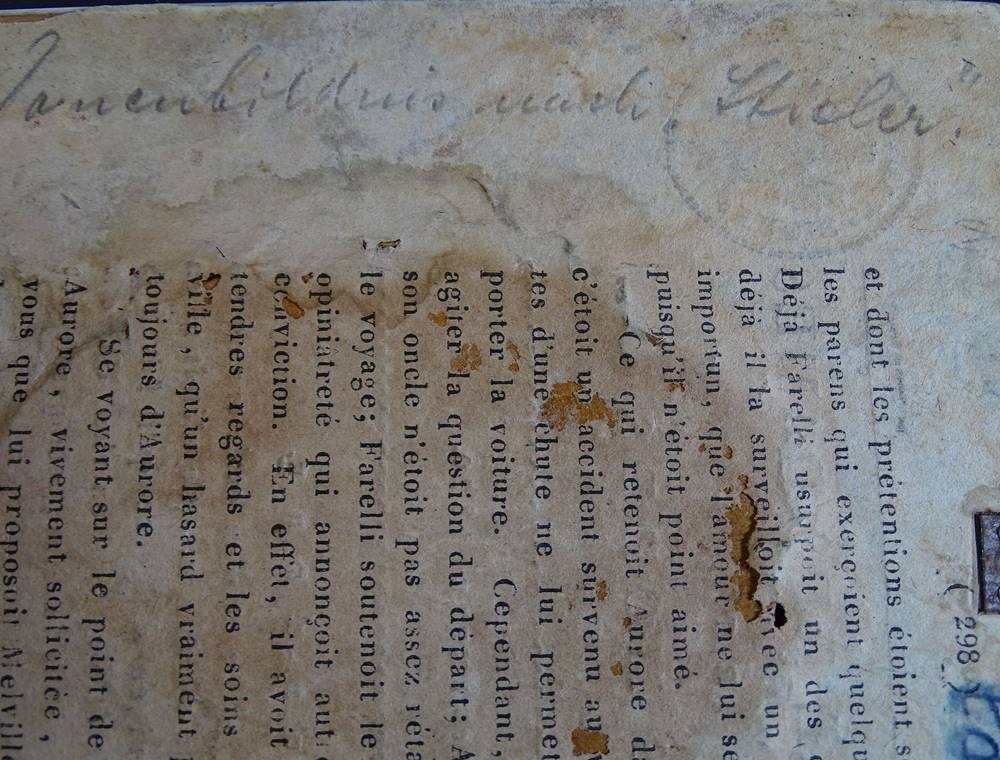 nach "Stieler."
( 298 )
et dont les prétentions étoient
les parens qui exerçoient
Déjà Farelli usurpoit un des
déjà il la surveilloit avec un
importun, que l'amour ne lui
puisqu'il n'étoit point aimé.
Ce qui retenoit Aurore
c'étoit un accident survenu au
tes d'une chute ne lui
porter la voiture. Cependant,
agiter la question du départ;
son oncle n'étoit pas assez
le voyage; Farelli soutenoit le
opiniâtreté qui annonçoit
conviction. En effet, il avoit
tendres regards et les soins
ville, qu'un hasard vraiment
toujours d'Aurore.
Se voyant sur le point de
Aurore, vivement sollicitée,
vous que lui proposoit